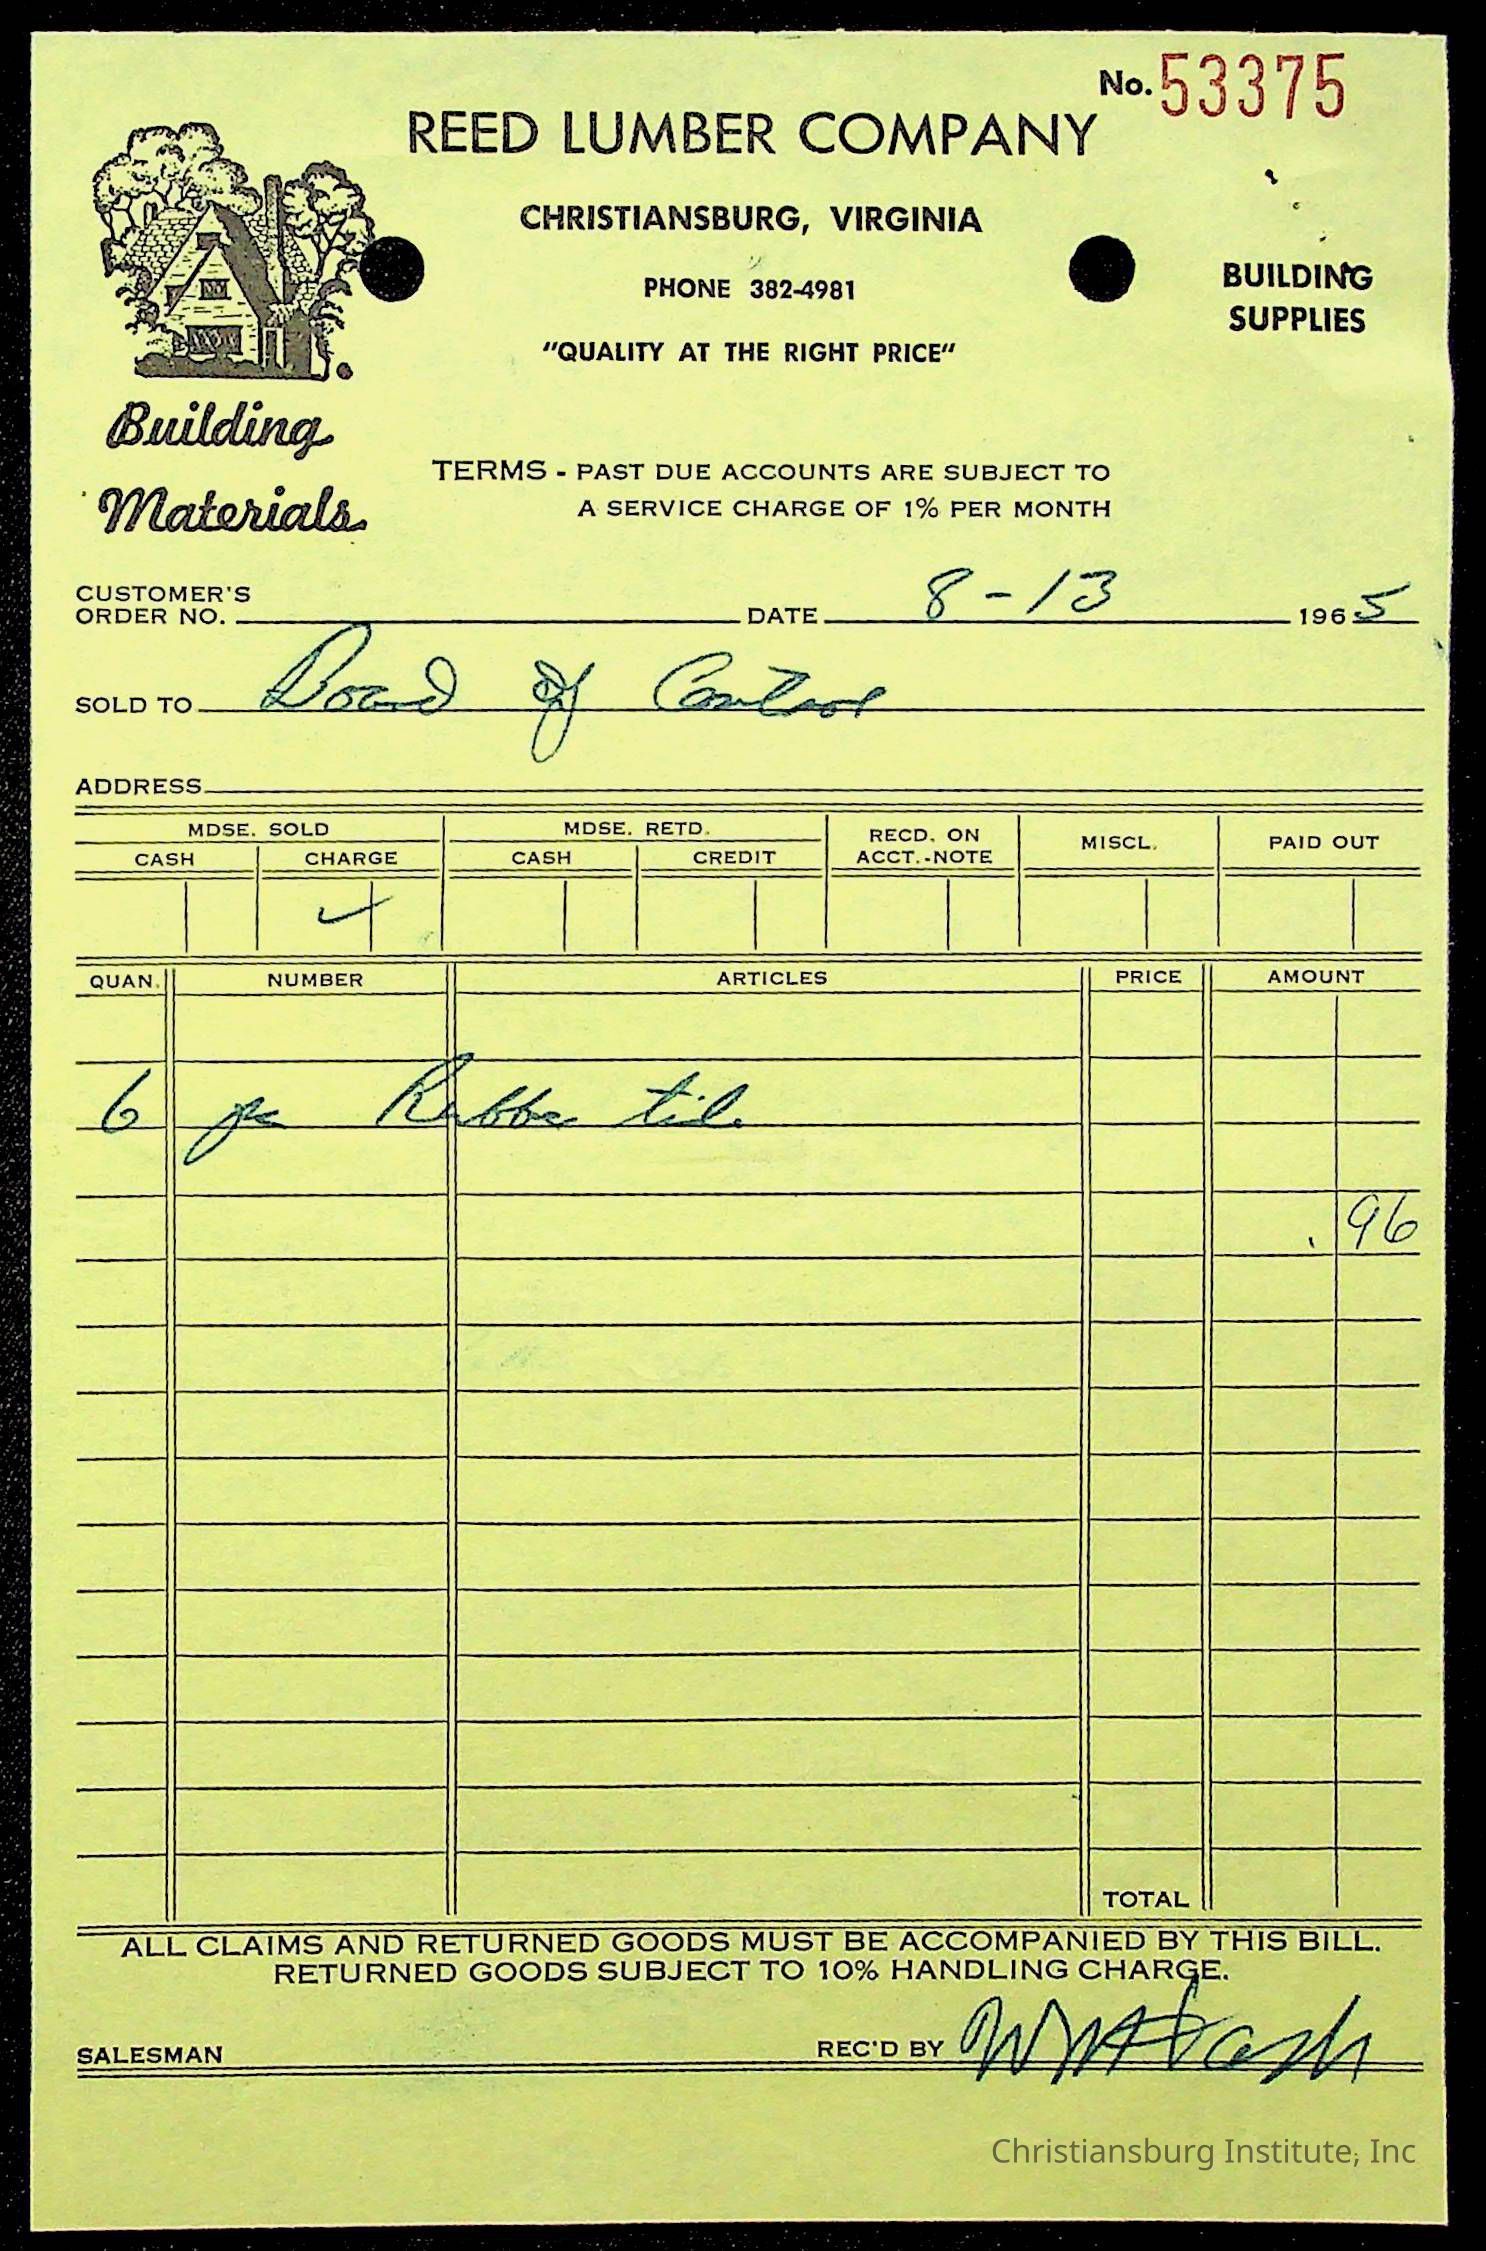 No. 53375
REED LUMBER COMPANY
CHRISTIANSBURG, VIRGINIA
PHONE 382-4981
"QUALITY AT THE RIGHT PRICE"
BUILDING
SUPPLIES
Building
Materials
TERMS - PAST DUE ACCOUNTS ARE SUBJECT TO
A SERVICE CHARGE OF 1% PER MONTH
CUSTOMER'S
ORDER NO. DATE 8-13 1965
SOLD TO Board of Control
ADDRESS
MDSE. SOLD MDSE. RETD. RECD. ON ACCT.-NOTE MISCL. PAID OUT
CASH CHARGE CASH CREDIT
✓
QUAN. NUMBER ARTICLES PRICE AMOUNT
6 pc Rubber tile
.96
TOTAL
ALL CLAIMS AND RETURNED GOODS MUST BE ACCOMPANIED BY THIS BILL.
RETURNED GOODS SUBJECT TO 10% HANDLING CHARGE.
SALESMAN REC'D BY
Christiansburg Institute, Inc